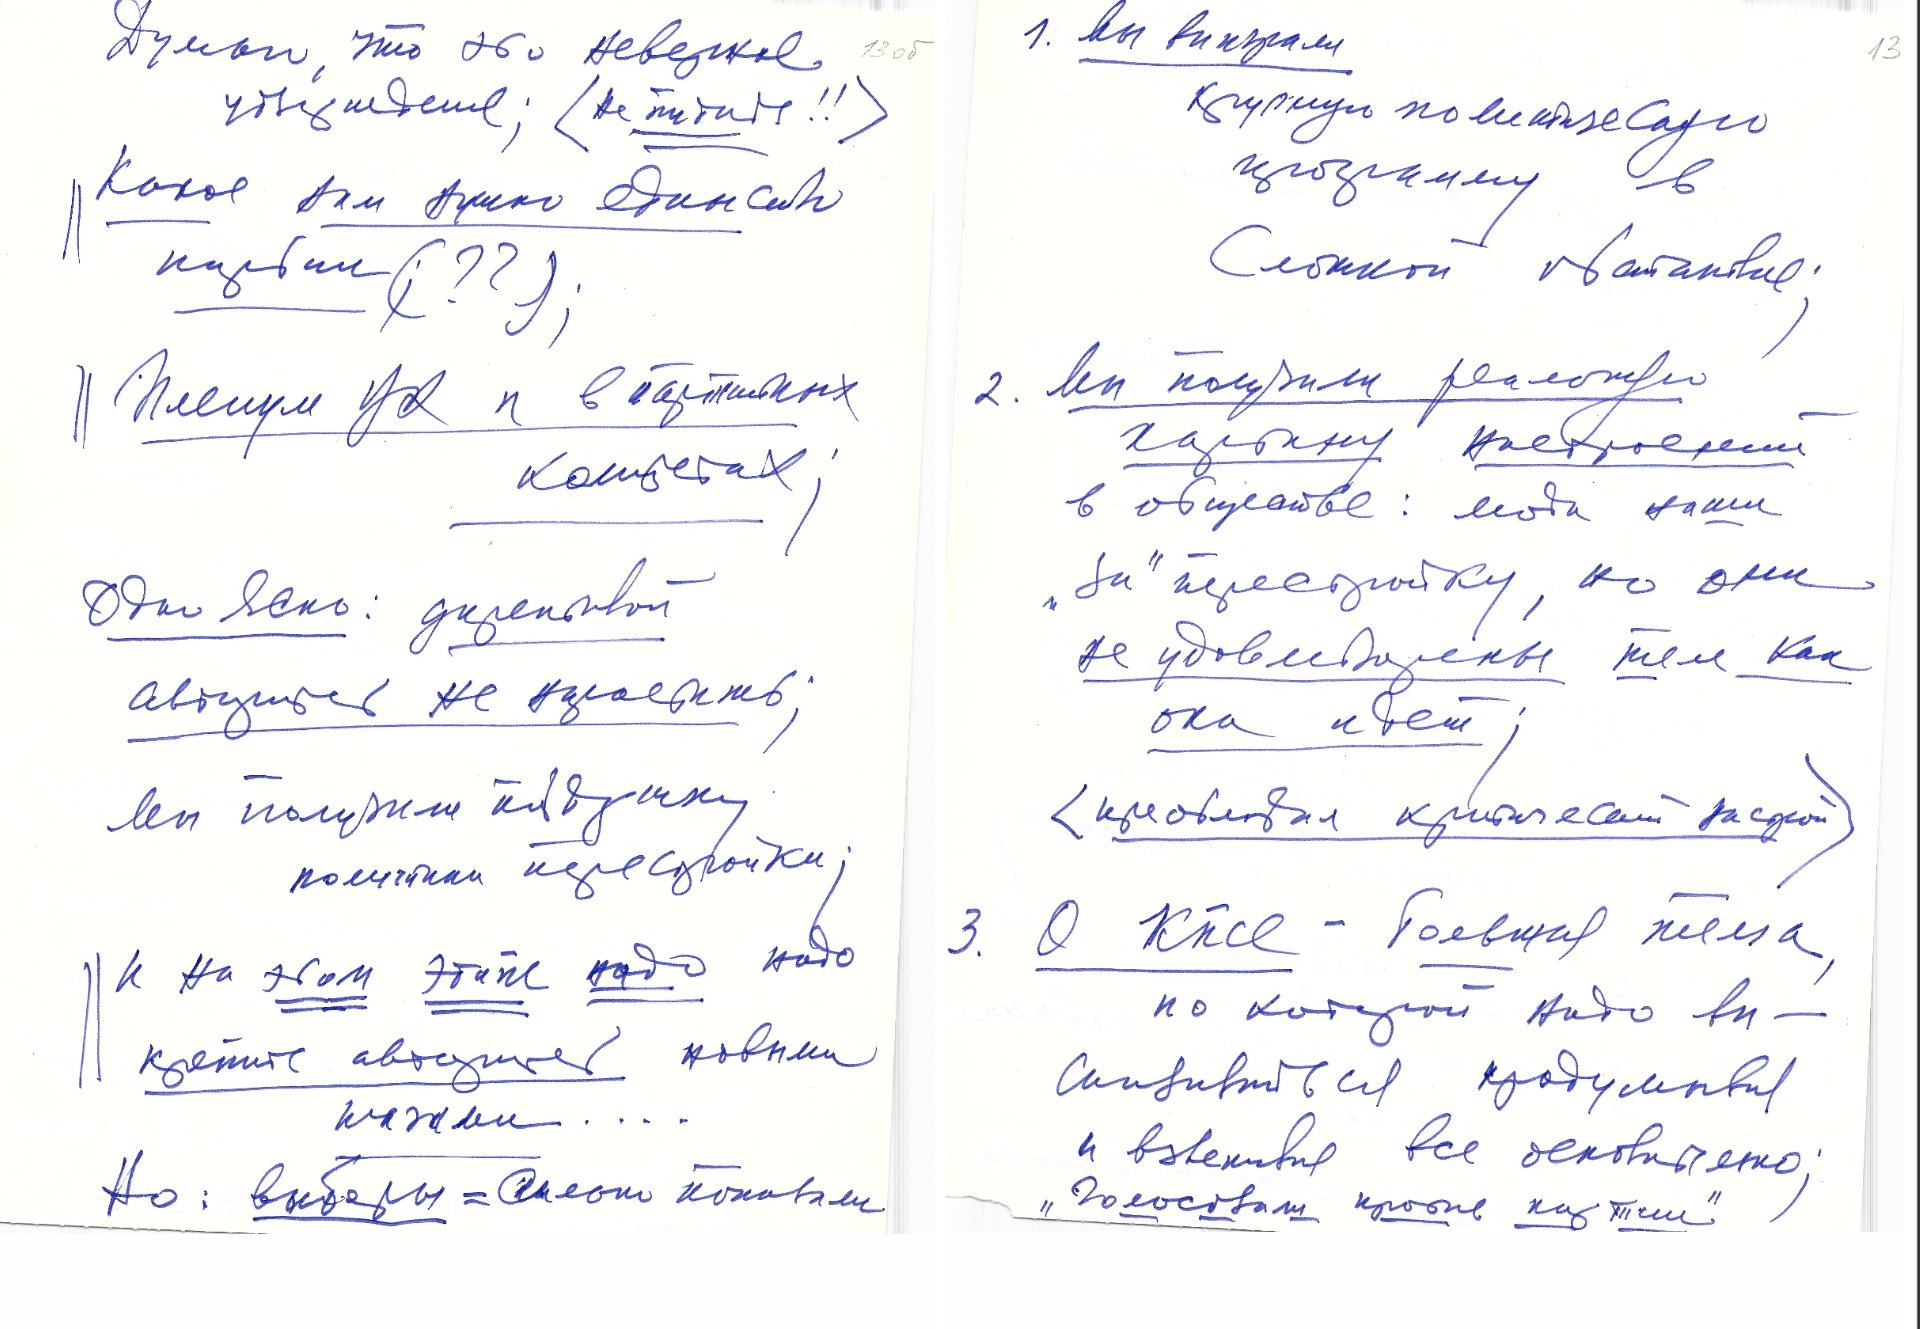 13об
Думаю, что это неверное
утверждение; <не питать!!>
Какое нам нужно единство
партии (??);
Пленум ЦК и в партийных
комитетах;
Одно ясно: директивой
авторитет не нарастить;
Мы получили поддержку
политики перестройки;
И на этом этапе надо надо
крепить авторитет новыми
шагами.....
Но: выборы = сильно показали
13
1. Мы выиграли
крупную политическую
программу в
сложной обстановке;
2. Мы получили реальную
картину настроений
в обществе: люди наши
„за" перестройку, но они
не удовлетворены тем как
она идет;
<преобладал критический настрой>
3. О КПСС – большая тема,
по которой надо вы–
сказываться продумывая
и взвешивая все основательно;
„Голосовали против партии"